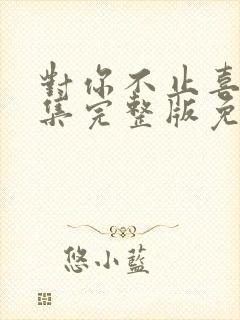 對你不止喜
集完整版免
悠小藍